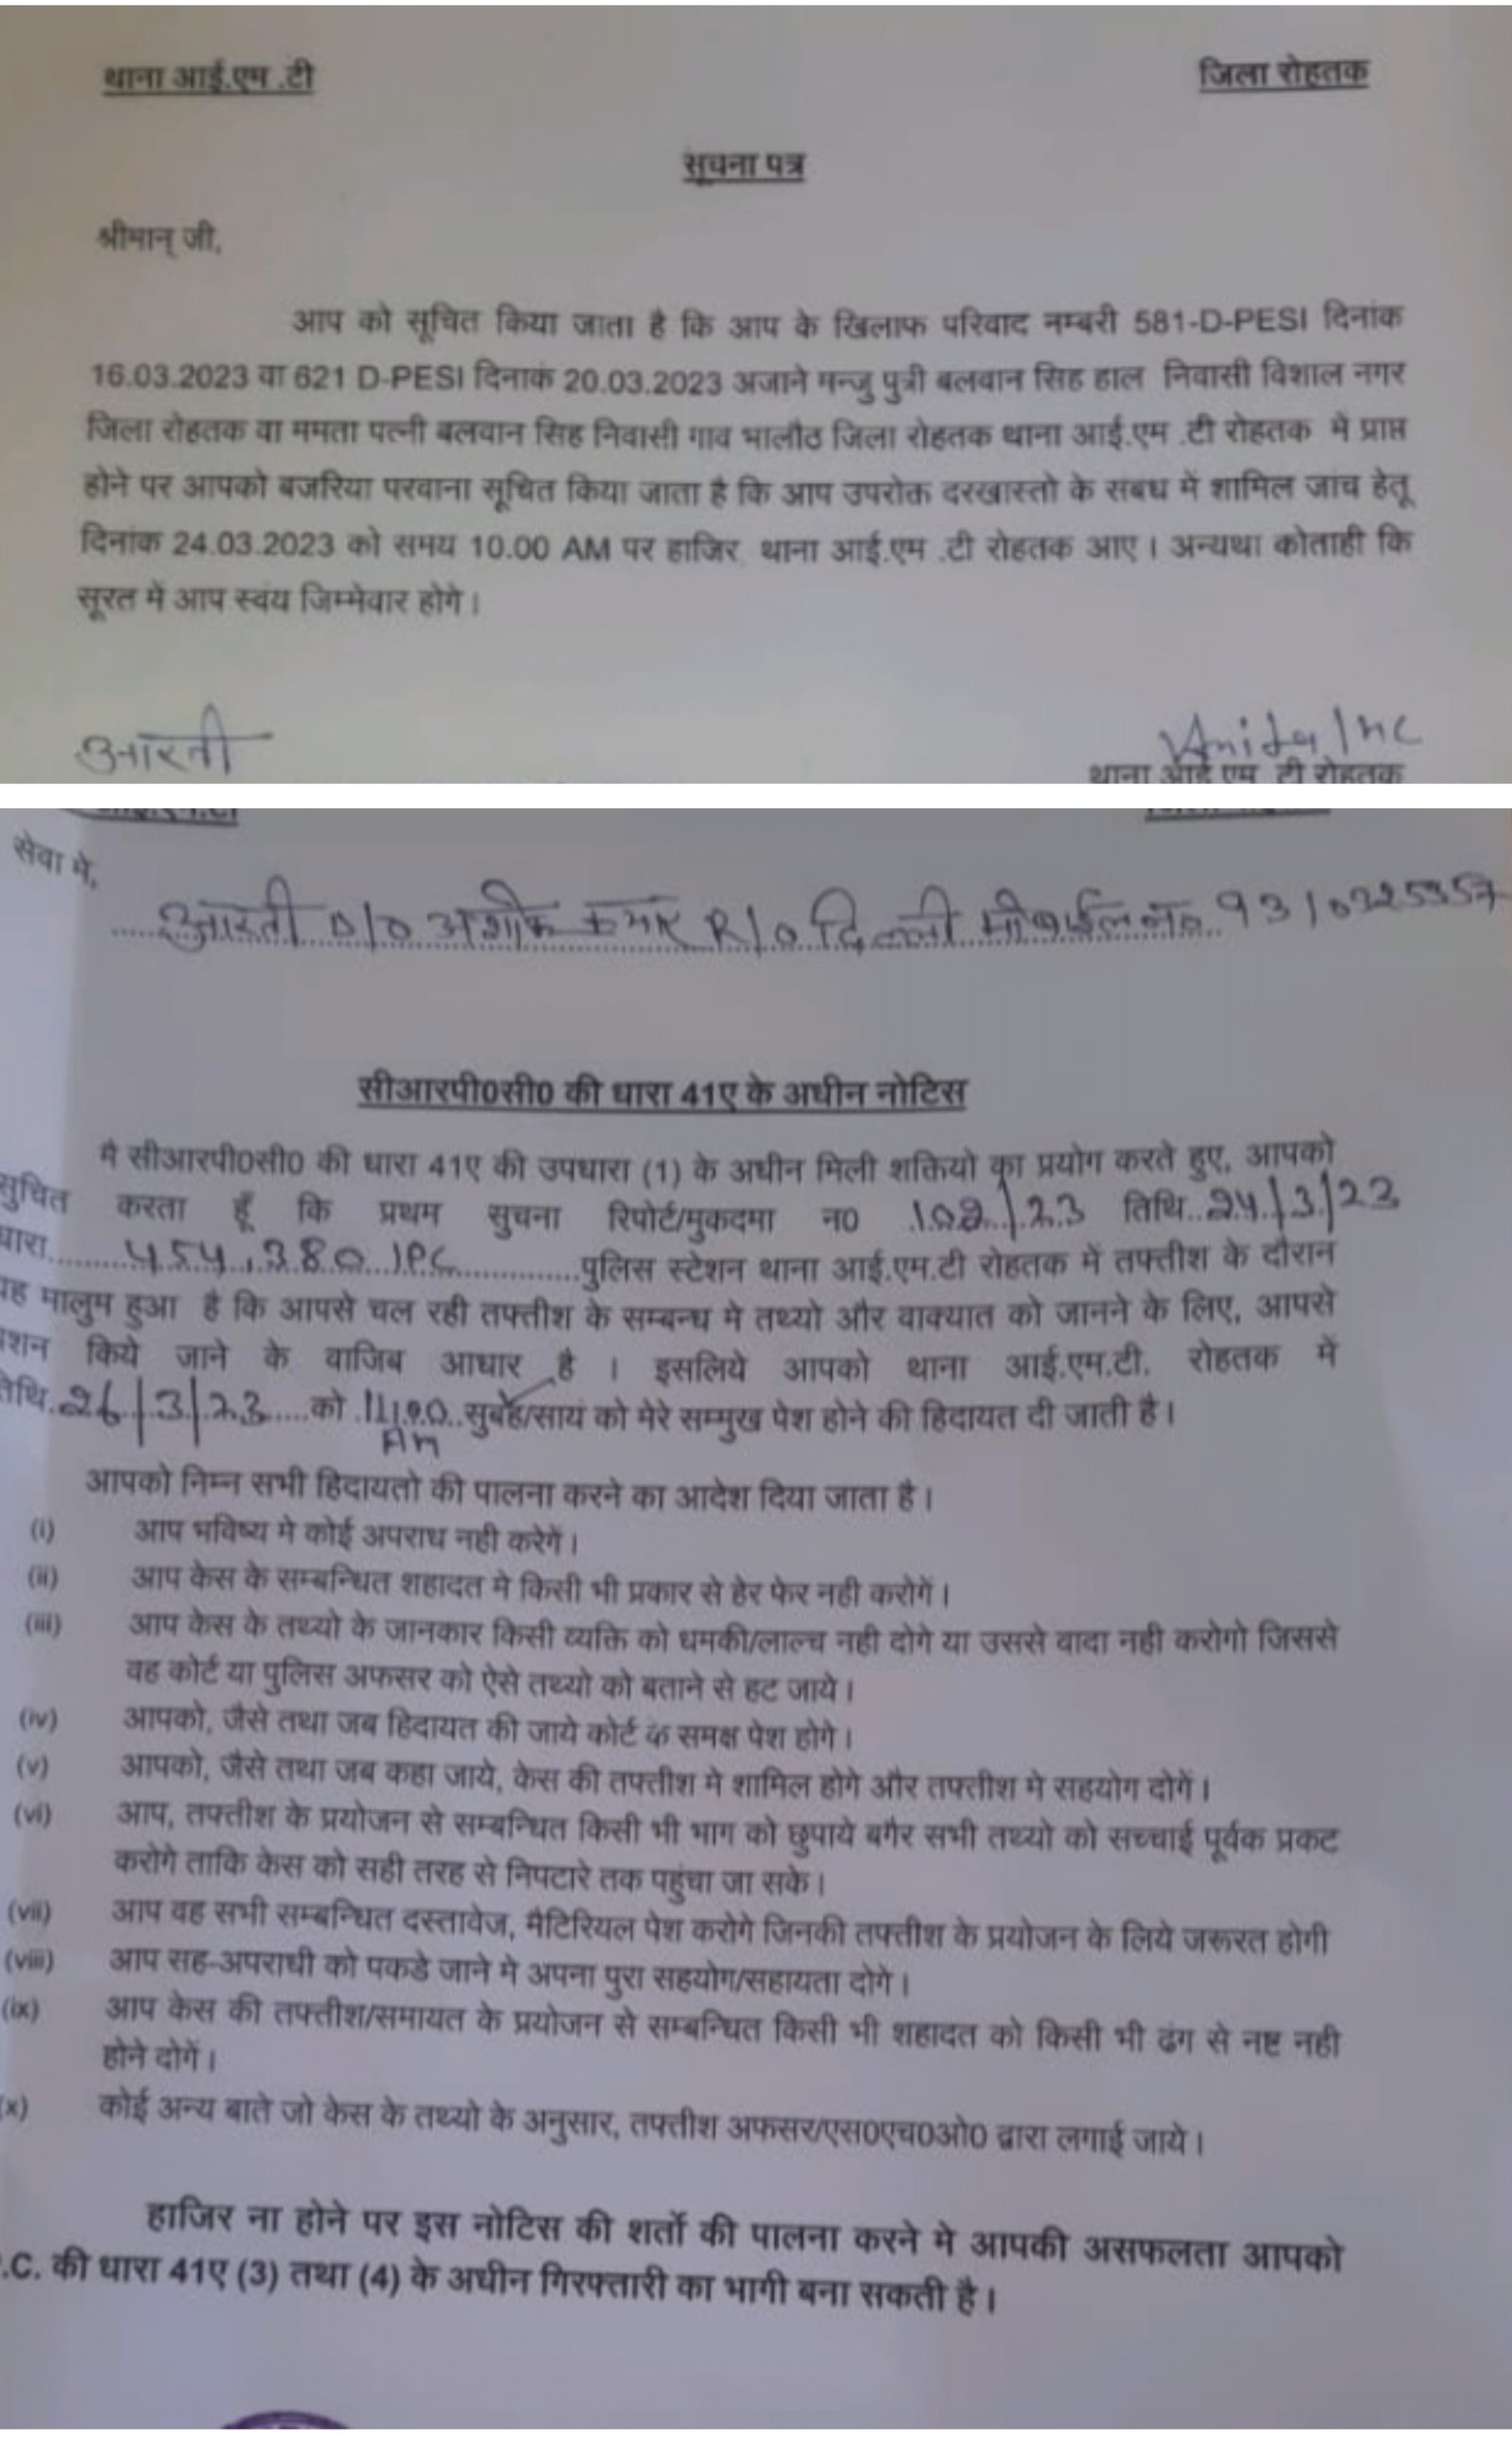 थाना आई.एम .टी
जिला रोहतक
सूचना पत्र
श्रीमान् जी,
आप को सूचित किया जाता है कि आप के खिलाफ परिवाद नम्बरी 581-D-PESI दिनांक
16.03.2023 वा 621 D-PESI दिनाकं 20.03.2023 अजाने मन्जु पुत्री बलवान सिह हाल निवासी विशाल नगर
जिला रोहतक वा ममता पत्नी बलवान सिह निवासी गाव भालौठ जिला रोहतक थाना आई.एम .टी रोहतक में प्राप्त
होने पर आपको बजरिया परवाना सूचित किया जाता है कि आप उपरोक्त दरखास्तो के संबध में शामिल जांच हेतू
दिनांक 24.03.2023 को समय 10.00 AM पर हाजिर थाना आई.एम .टी रोहतक आए । अन्यथा कोताही कि
सूरत में आप स्वंय जिम्मेवार होगे ।
आरती
Anita/HC
थाना आई एम टी रोहतक
सेवा मे,
आरती D/O अशोक कुमार R/O दिल्ली मोबाईल नं० 9310325957
सीआरपी0सी0 की धारा 41ए के अधीन नोटिस
मै सीआरपी0सी0 की धारा 41ए की उपधारा (1) के अधीन मिली शक्तियो का प्रयोग करते हुए, आपको
सुचित करता हूँ कि प्रथम सुचना रिपोर्ट/मुकदमा न0 102/23 तिथि..24/3/23
धारा....454,380 IPC....पुलिस स्टेशन थाना आई.एम.टी रोहतक में तफ्तीश के दौरान
यह मालुम हुआ है कि आपसे चल रही तफ्तीश के सम्बन्ध मे तथ्यो और वाक्यात को जानने के लिए, आपसे
किये जाने के वाजिब आधार है । इसलिये आपको थाना आई.एम.टी. रोहतक में
तिथि.26/3/23....को .11:00..सुबह/सायं को मेरे सम्मुख पेश होने की हिदायत दी जाती है ।
AM
आपको निम्न सभी हिदायतो की पालना करने का आदेश दिया जाता है ।
(i) आप भविष्य मे कोई अपराध नही करेगें ।
(ii) आप केस के सम्बन्धित शहादत मे किसी भी प्रकार से हेर फेर नही करोगें ।
(iii) आप केस के तथ्यो के जानकार किसी व्यक्ति को धमकी/लाल्च नही दोगे या उससे वादा नही करोगो जिससे
वह कोर्ट या पुलिस अफसर को ऐसे तथ्यो को बताने से हट जाये ।
(iv) आपको, जैसे तथा जब हिदायत की जाये कोर्ट के समक्ष पेश होगे ।
(v) आपको, जैसे तथा जब कहा जाये, केस की तफ्तीश मे शामिल होगे और तफ्तीश मे सहयोग दोगें ।
(vi) आप, तफ्तीश के प्रयोजन से सम्बन्धित किसी भी भाग को छुपाये बगैर सभी तथ्यो को सच्चाई पूर्वक प्रकट
करोगे ताकि केस को सही तरह से निपटारे तक पहुंचा जा सके ।
(vii) आप वह सभी सम्बन्धित दस्तावेज, मैटिरियल पेश करोगे जिनकी तफ्तीश के प्रयोजन के लिये जरूरत होगी
(viii) आप सह-अपराधी को पकडे जाने मे अपना पुरा सहयोग/सहायता दोगे ।
(ix) आप केस की तफ्तीश/समायत के प्रयोजन से सम्बन्धित किसी भी शहादत को किसी भी ढंग से नष्ट नही
होने दोगें ।
(x) कोई अन्य बाते जो केस के तथ्यो के अनुसार, तफ्तीश अफसर/एस0एच0ओ0 द्वारा लगाई जाये ।
हाजिर ना होने पर इस नोटिस की शर्तो की पालना करने मे आपकी असफलता आपको
.C. की धारा 41ए (3) तथा (4) के अधीन गिरफ्तारी का भागी बना सकती है ।